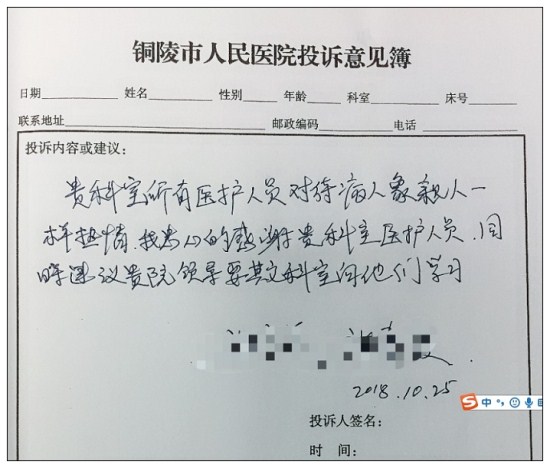 铜陵市人民医院投诉意见簿
日期 姓名 性别 年龄 科室 床号
联系地址 邮政编码 电话
投诉内容或建议:
贵科室所有医护人员对待病人象亲人一
样热情.我衷心的感谢贵科室医护人员.同
时建议贵院领导要其它科室向他们学习
2018.10.25
S 中
投诉人签名:
时 间: